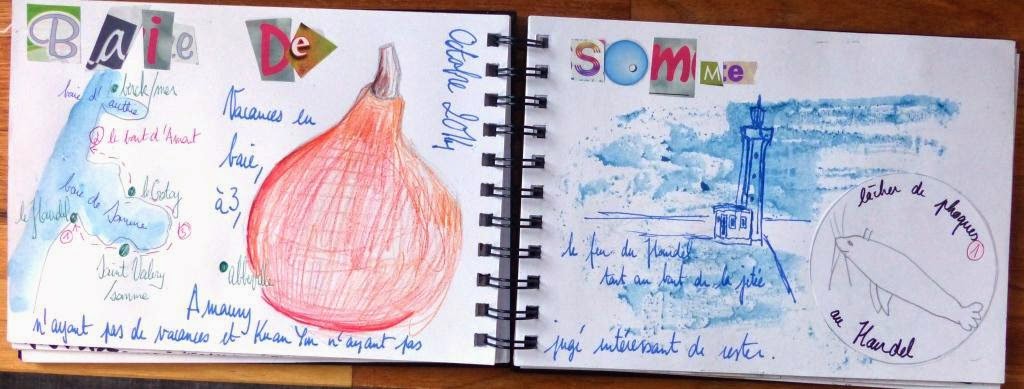 Baie De
Octobre 2014
baie d'authie
berck/mer
2 le bout d'Amont
le Crotoy
baie de Somme
le Hourdel
1
3
Saint Valery
/somme
abbeville
Vacances en
baie,
à 3,
Amaury
n'ayant pas de vacances et Kuan Yin n'ayant pas
SOMme
le feu du Hourdel
tout au bout de la jetée
jugé intéressant de rester.
lâcher de phoques 1
au Hourdel